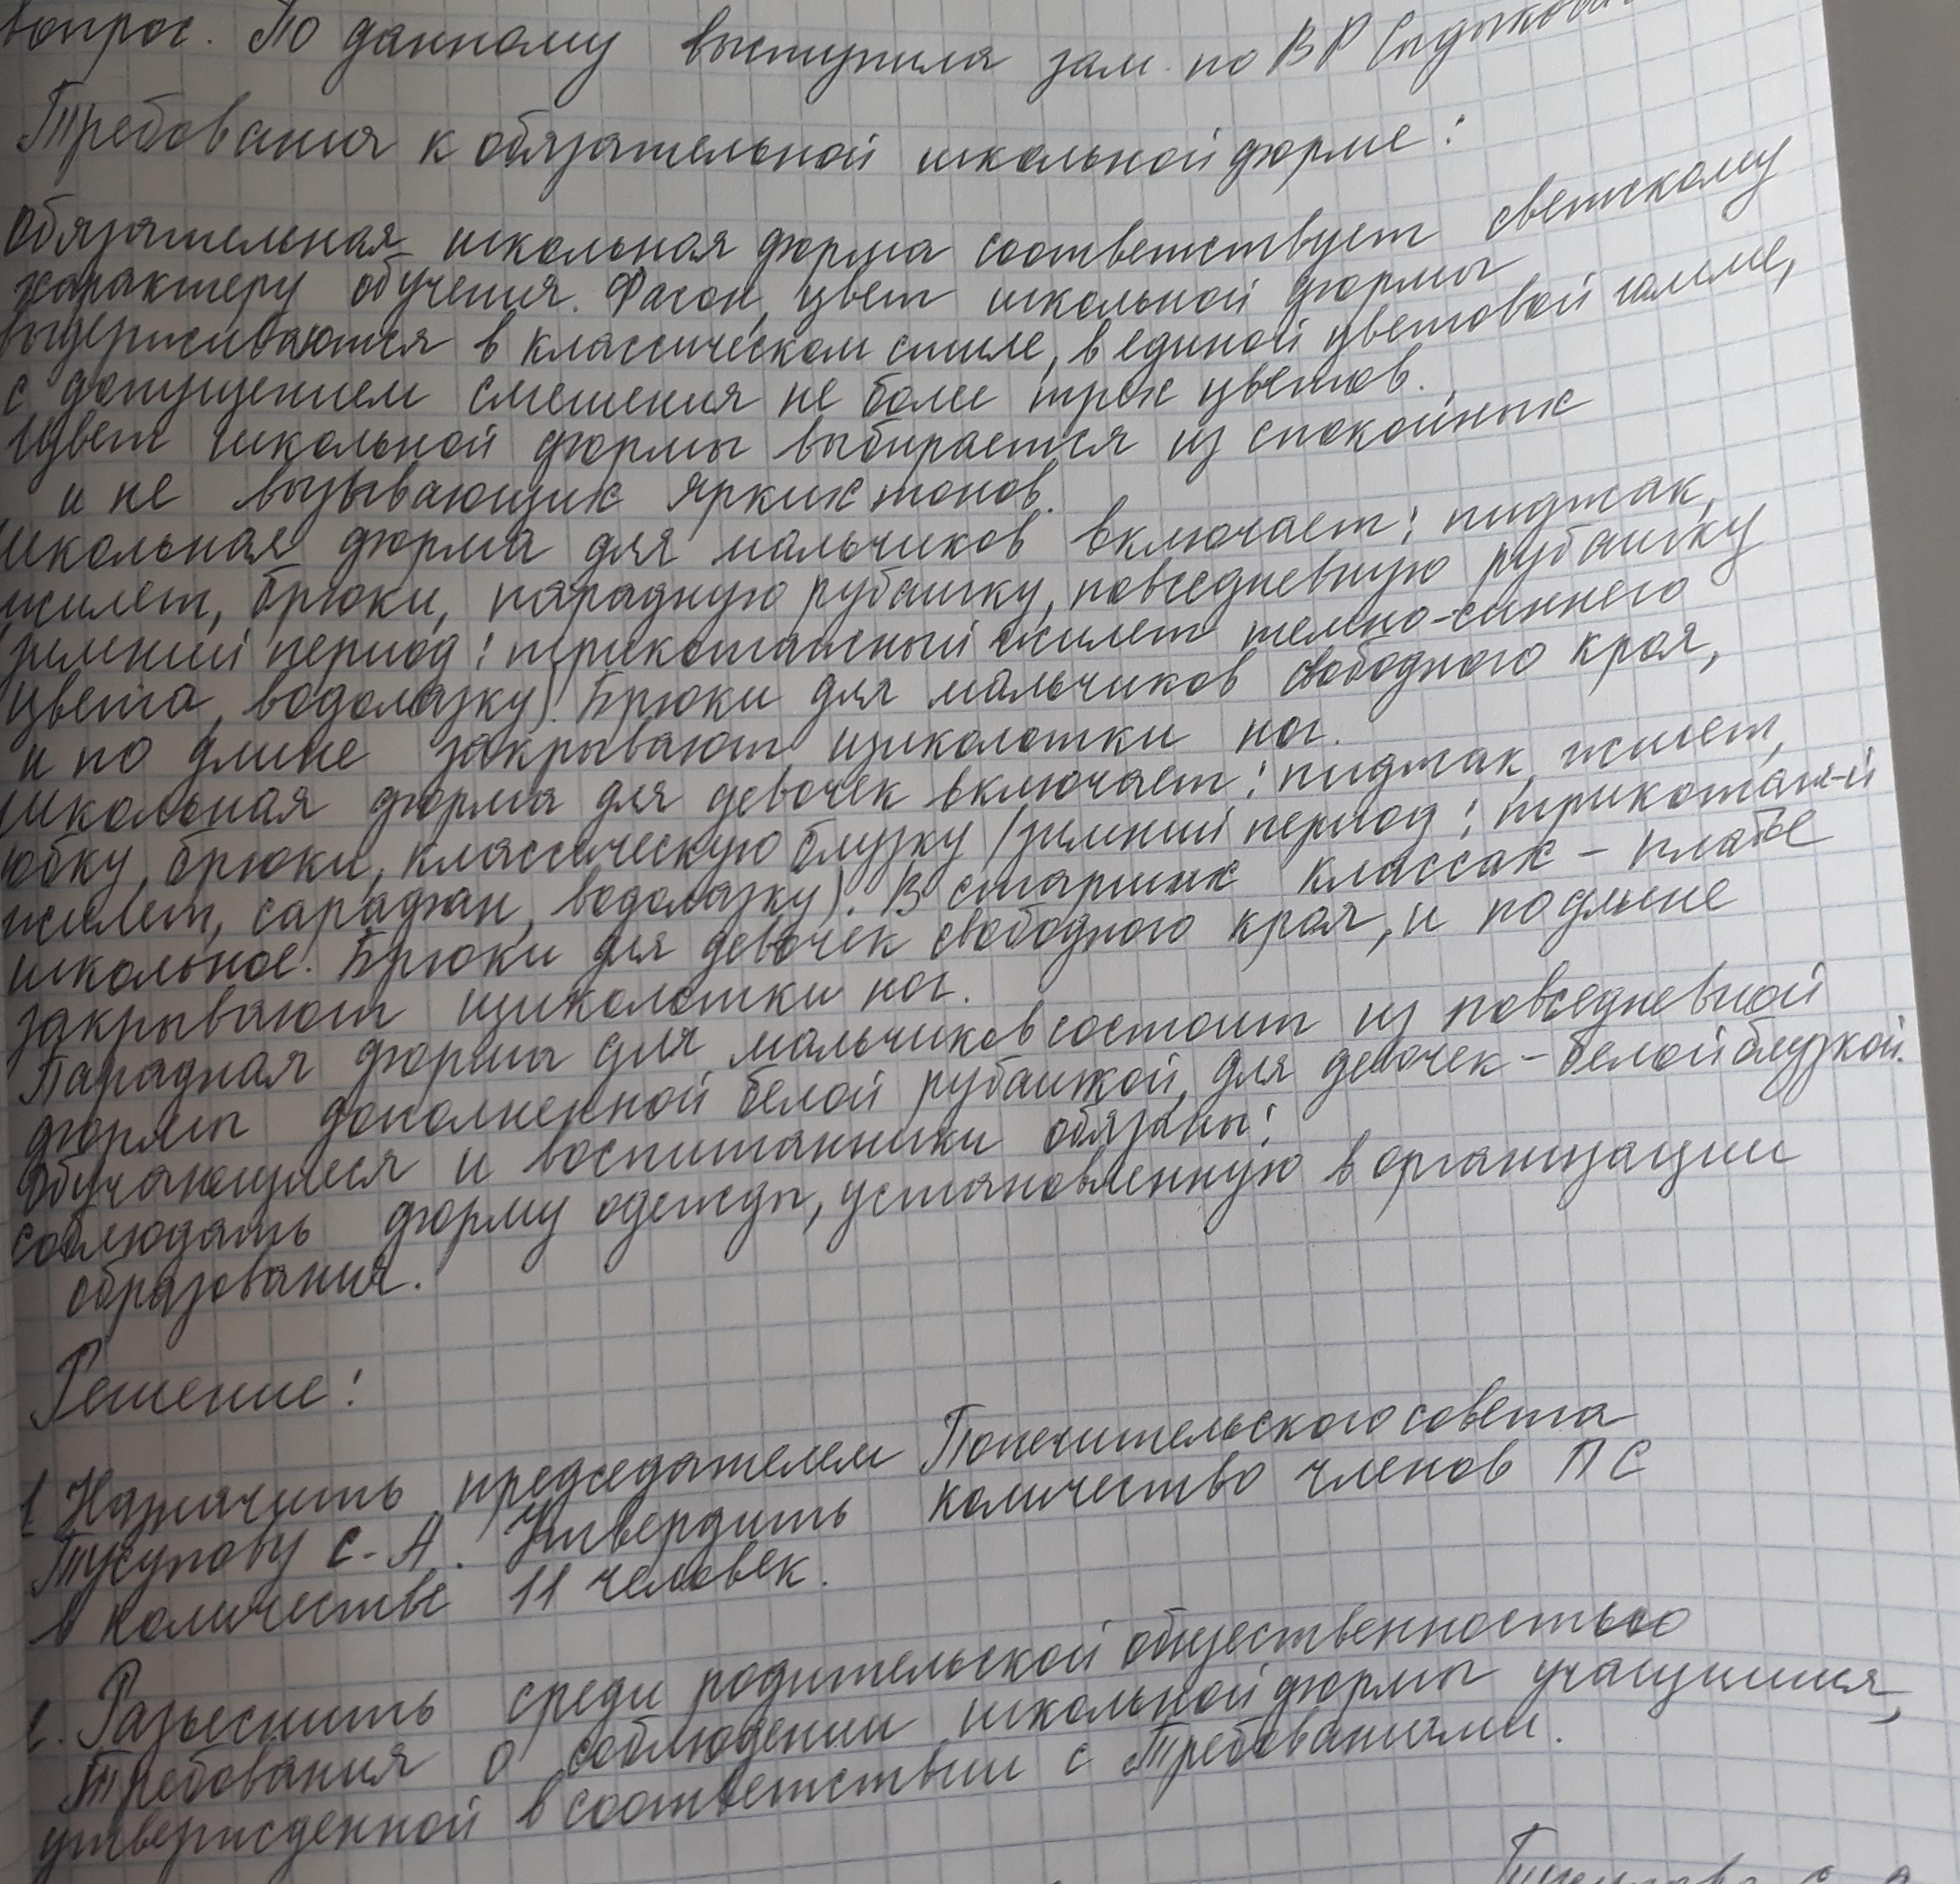 вопрос. По данному выступила зам. по ВР
Требования к обязательной школьной форме:
Обязательная школьная форма соответствует светскому
характеру обучения. Фасон, цвет школьной формы
выдерживаются в классическом стиле, в единой цветовой гамме,
с допущением смешения не более трех цветов.
Цвет школьной формы выбирается из спокойных
и не вызывающих ярких тонов.
Школьная форма для мальчиков включает: пиджак,
жилет, брюки, парадную рубашку, повседневную рубашку
зимний период: трикотажный жилет темно-синнего
цвета, водолазку). Брюки для мальчиков свободного кроя,
и по длине закрывают щиколотки ног.
Школьная форма для девочек включает: пиджак, жилет,
юбку, брюки, классическую блузку (зимний период: трикотаж-й
жилет, сарафан, водолазку). В старших классах - платье
школьное. Брюки для девочек свободного кроя, и по длине
закрывают щиколотки ног.
Парадная форма для мальчиков состоит из повседневной
формы дополненной белой рубашкой, для девочек - белой блузкой.
Обучающиеся и воспитанники обязаны:
соблюдать форму одежды, установленную в организации
образования.
Решение:
1. Назначить председателем Попечительского совета
Тусупову С.А. Утвердить количество членов ПС
в количестве 11 человек.
2. Разъяснить среди родительской общественностью
Требования о соблюдении школьной формы учащимися,
утвержденной в соответствии с Требованиями.